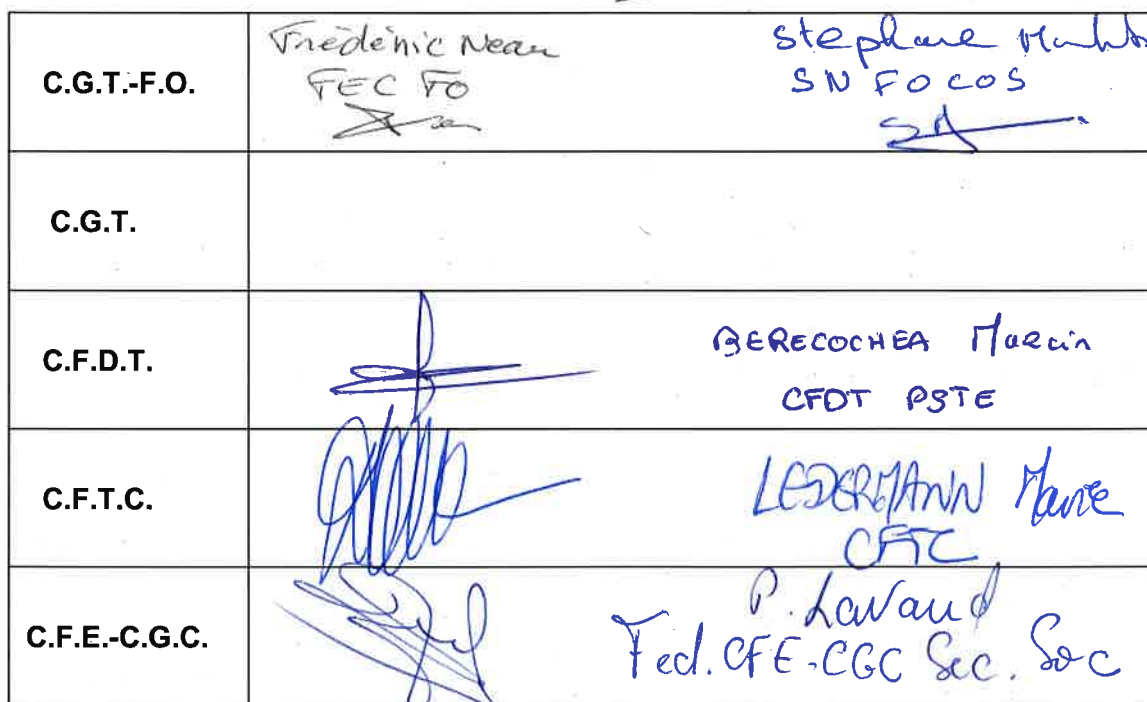 C.G.T.-F.O.
Frédéric Neau
FEC FO
Stephane
SN FOCOS
C.G.T.
C.F.D.T.
BERECOCHEA Marcin
CFDT PSTE
C.F.T.C.
LEDERMANN Marie
CFTC
C.F.E.-C.G.C.
P. Lavaud
Fed. CFE-CGC Sec. Soc